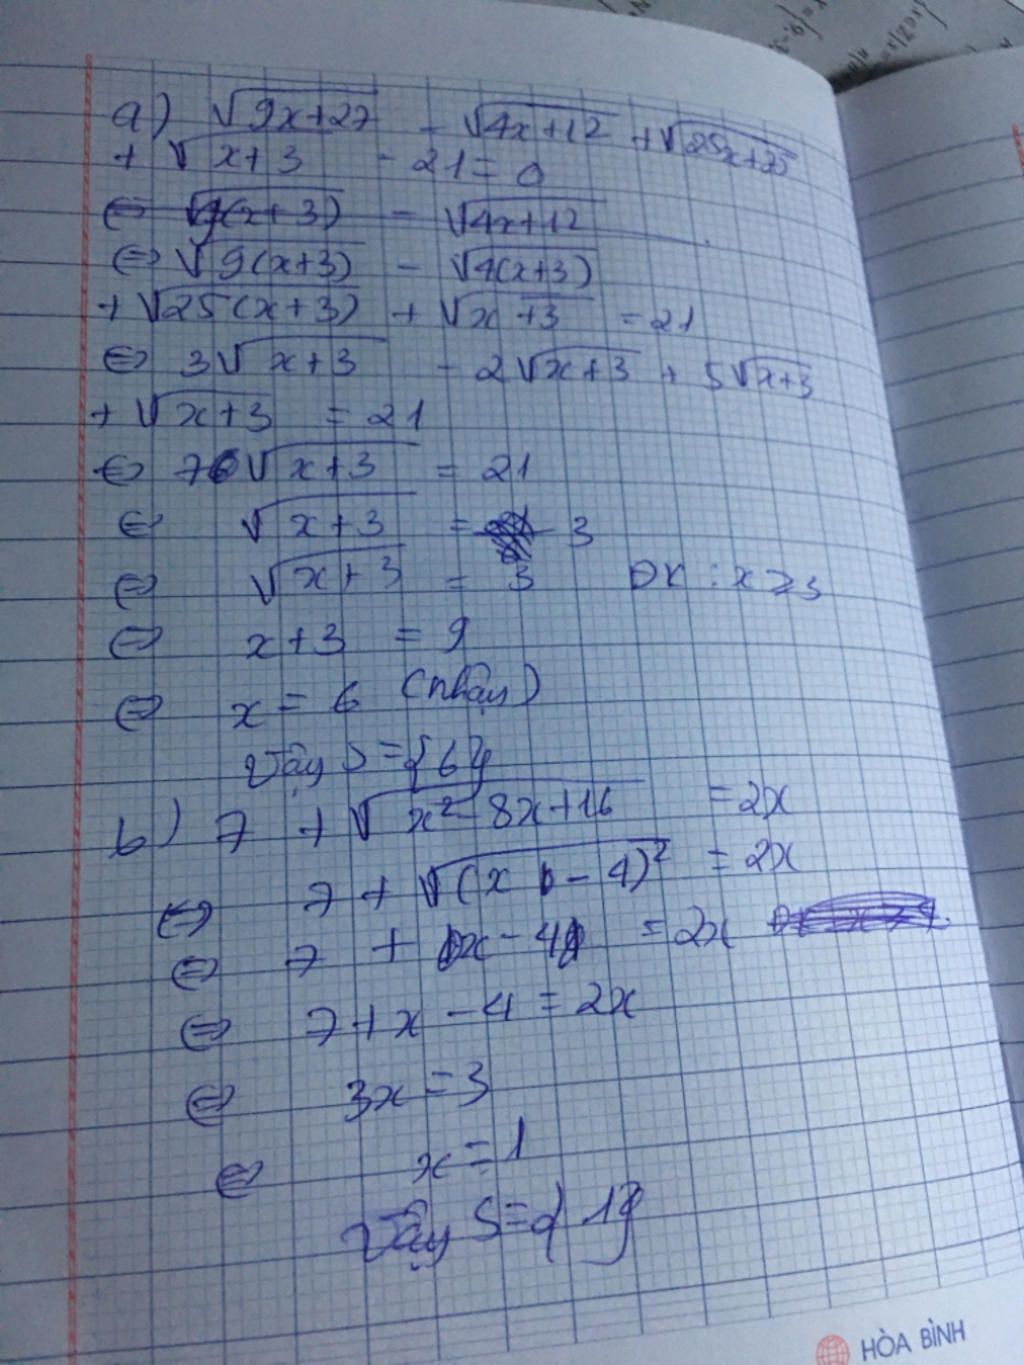 a) √9x+27 - √4x+12 + √25x+75
+ √x+3 - 21 = 0
⇔ √9(x+3) - √4x+12
⇔ √9(x+3) - √4(x+3)
+ √25(x+3) + √x+3 = 21
⇔ 3√x+3 - 2√x+3 + 5√x+3
+ √x+3 = 21
⇔ 7√x+3 = 21
⇔ √x+3 = 3
⇔ √x+3 = 3 ĐK : x ≥ 3
⇔ x+3 = 9
⇔ x = 6 (nhận)
Vậy S = {6}
b) 7 + √x²-8x+16 = 2x
⇔ 7 + √(x-4)² = 2x
⇔ 7 + |x-4| = 2x
⇔ 7+x-4 = 2x
⇔ 3x = 3
⇔ x = 1
Vậy S = {1}
HÒA BÌNH